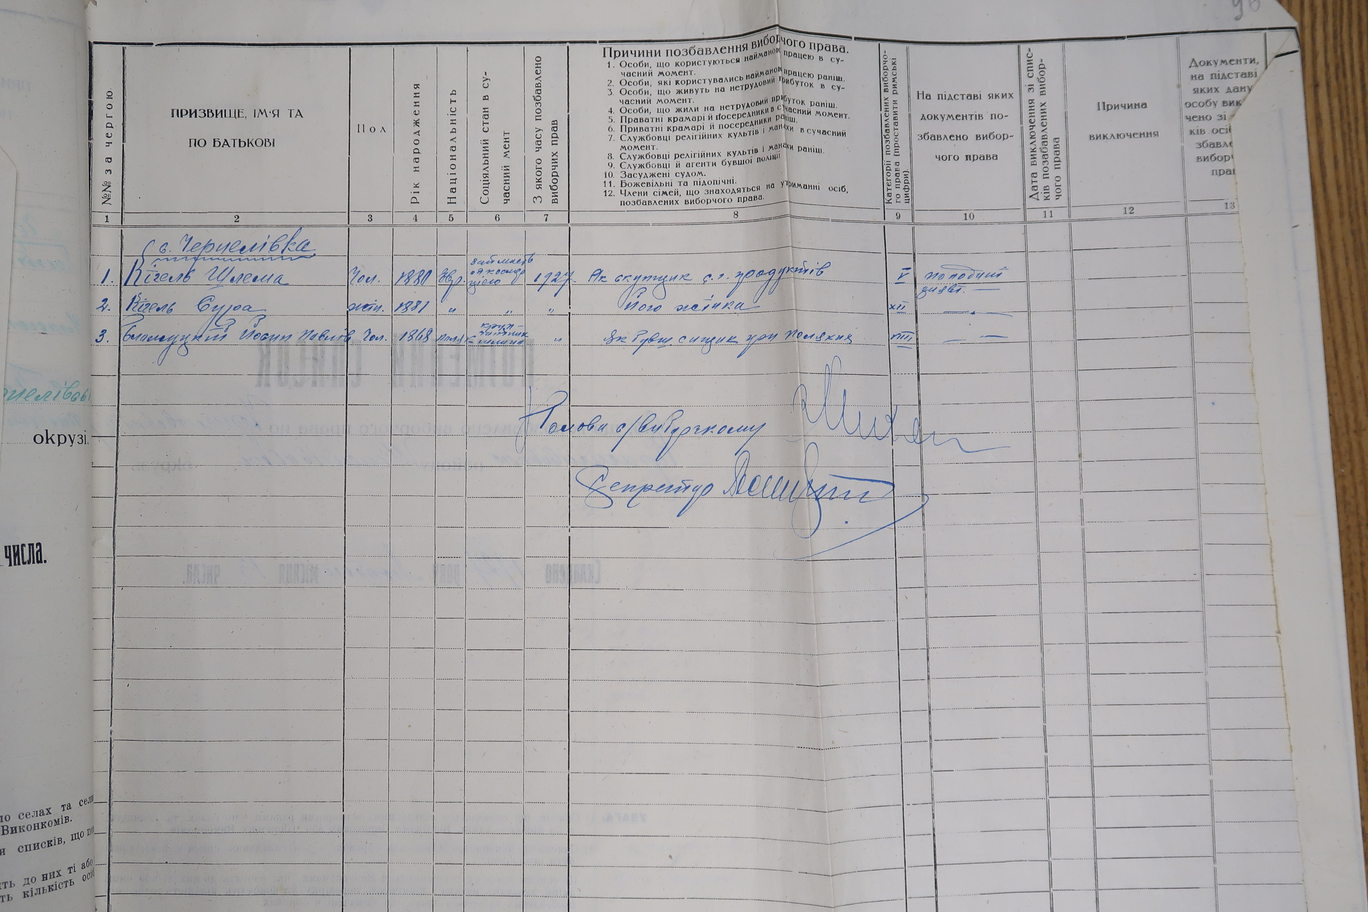 96
№№ за чергою
ПРИЗВИЩЕ, ІМ'Я ТА
ПО БАТЬКОВІ
Пол
Рік народження
Національність
Соціяльний стан в су-
часний мент
З якого часу позбавлено
виборчих прав
Причини позбавлення виборчого права.
1. Особи, що користуються найманою працею в су-
часний момент.
2. Особи, які користувались найманою працею раніш.
3. Особи, що живуть на нетрудовий прибуток в су-
часний момент.
4. Особи, що жили на нетрудовий прибуток раніш.
5. Праватні крамарі й посередники в сучасний момент.
6. Приватні крамарі й посередники раніш.
7. Службовці релігійних культів і манахи в сучасний
момент.
8. Службовці релігійних культів і манахи раніш.
9. Службовці й агенти бувшої поліції
10. Засуджені судом.
11. Божевільні та підопічні.
12. Члени сімей, що знаходяться на утриманні осіб,
позбавлених виборчого права.
Категорії позбавлених виборчо-
го права (проставити римські
цифри).
На підставі яких
документів по-
збавлено вибор-
чого права
Дата виключення зі спис-
ків позабавлених вибор-
чого права
Причина
виключення
Документи,
на підставі
яких дану
особу вик
чено зі
ків осіб
збавле
виборч
прав
1 2 3 4 5 6 7 8 9 10 11 12 13
с. Чернелівка
1. Кігель Шлема Чол. 1880 Євр. 1927. Як скупщик с.г. продуктів V
2. Кігель Сура жін. 1881 " " " Його жінка XII
3. Йосип Павлів Чол. 1868 "
Голова с/виборчкому
Секретар
округі.
числа.
по селах та сел
Виконкомів.
и списків, що п
ть до них ті або
ть кількість осі